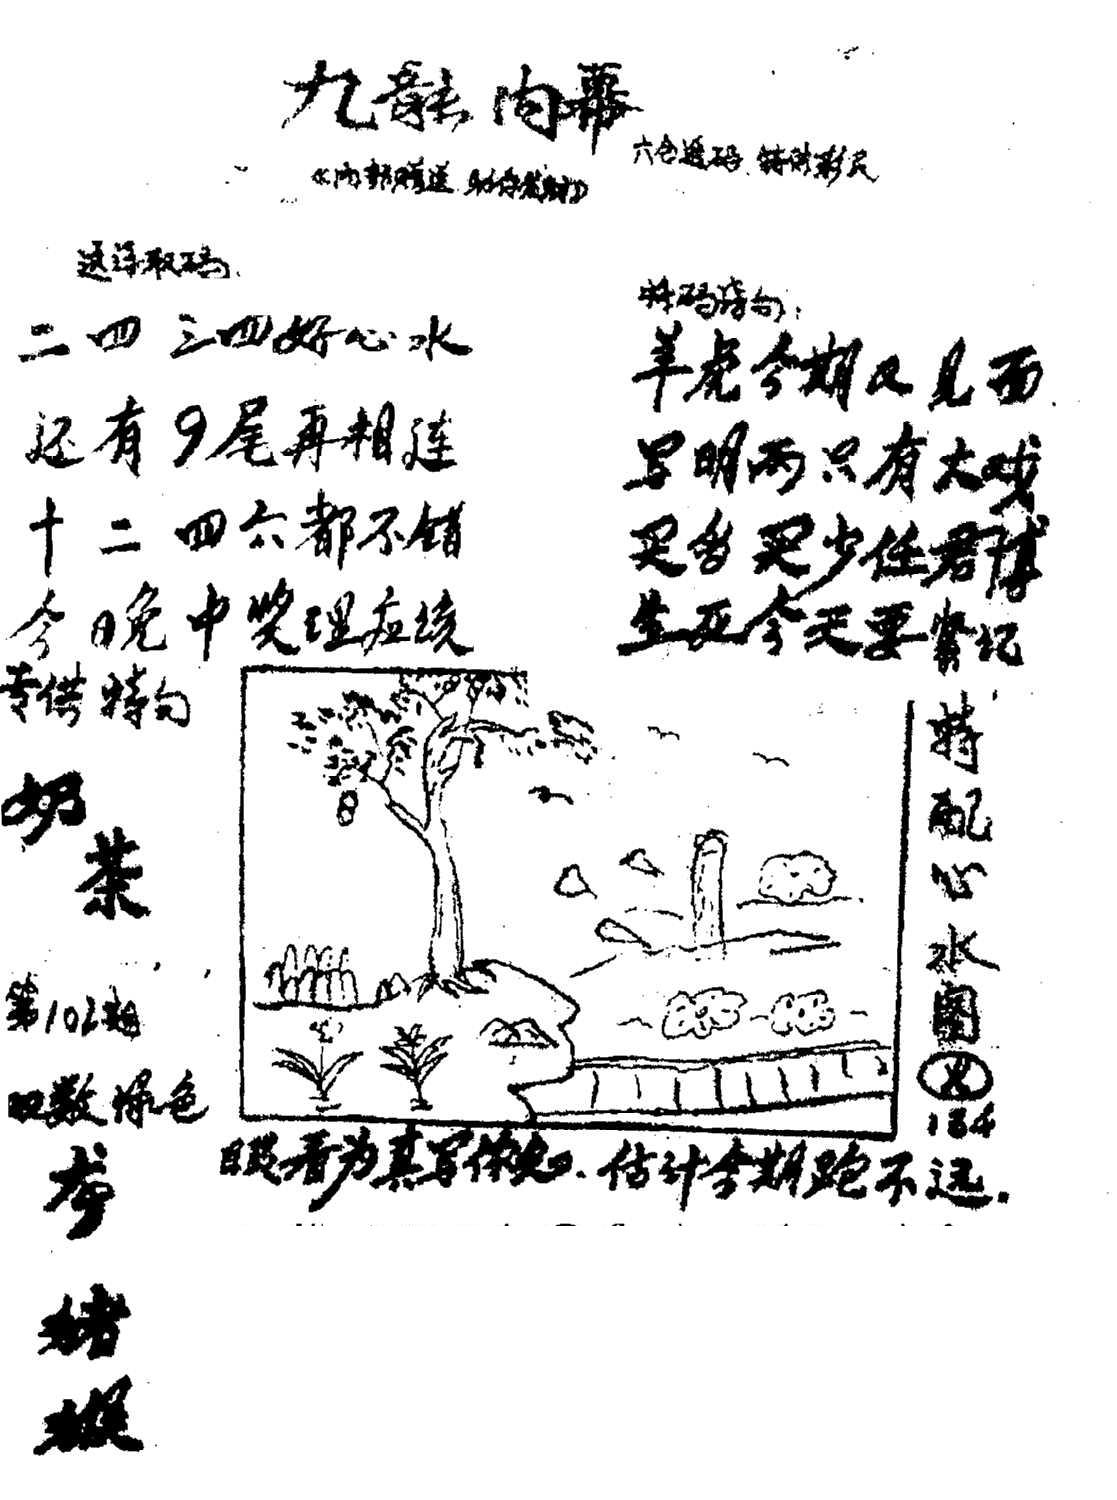 九龙内幕
六合透码 特供彩民
《内部赠送 助你发财》
送详取码
二四三四好心水
还有9尾再相连
十二四六都不错
今晚中奖理应统
特码诗句：
羊虎今期又见面
写明两只有大戏
买多买少任君博
生死今天要紧记
专供特句
奶茶
第102期
四数绿色
龙
猪
猴
特配心水图
184
眼看为真写你知．估计今期跑不远．